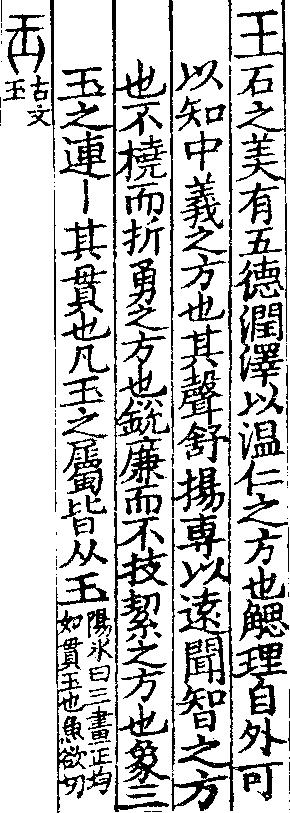 王石之美有五德潤澤以温仁之方也䚡理自外可
以知中義之方也其聲舒揚専以遠聞智之方
也不橈而折勇之方也銳廉而不技絜之方也象三
玉之連丨其貫也凡玉之屬皆从王陽冰曰三畫正均
如貫玉也魚欲切
𤣪古文
玉